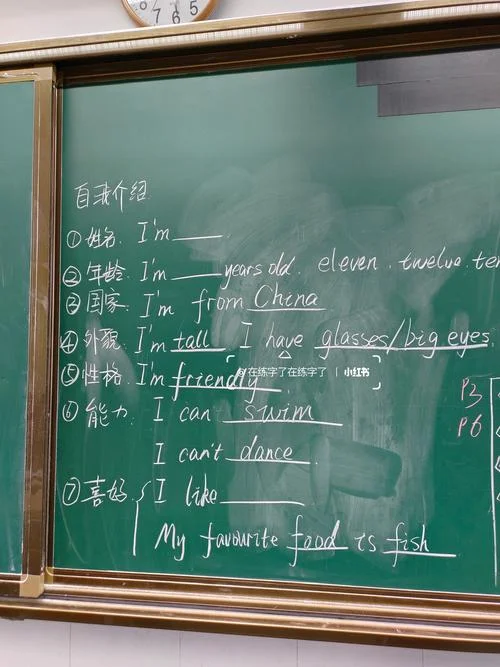 7 6 5
自我介绍
① 姓名. I'm ____
② 年龄. I'm ____ years old. eleven. twelve. ten
③ 国家. I'm from China
④ 外貌. I'm tall I have glasses/big eyes.
⑤ 性格. I'm friendly
@在练字了在练字了 | 小红书
⑥ 能力. I can swim
I can't dance.
⑦ 喜好. I like ____
My favourite food is fish
P3
P6